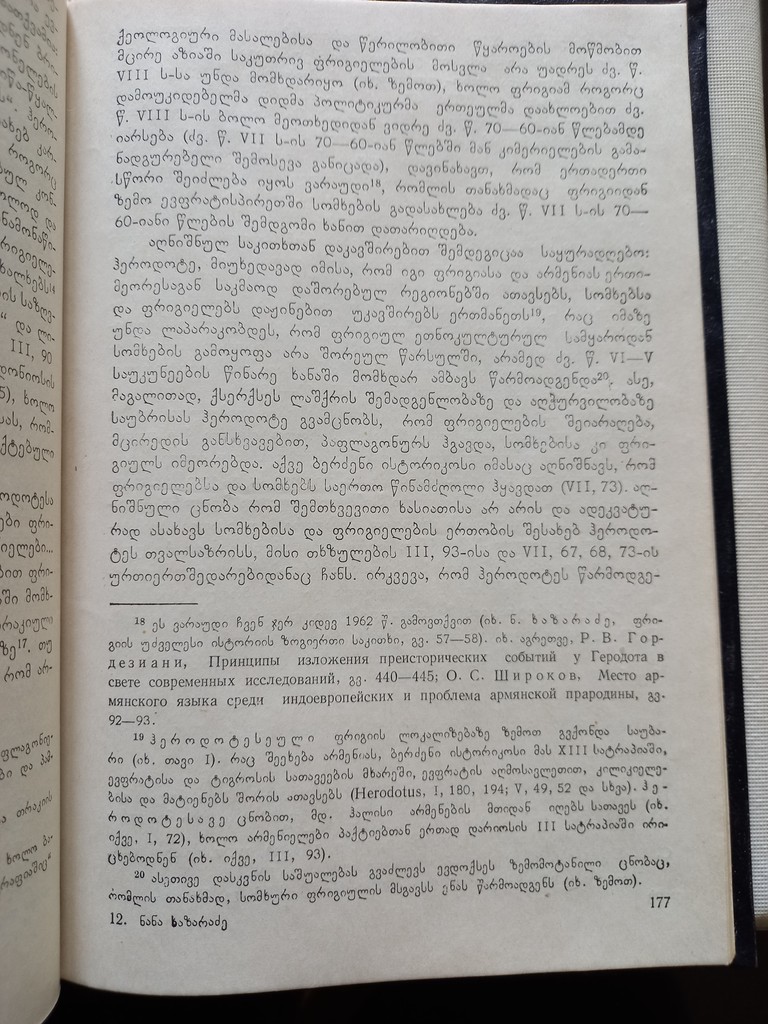 ქეოლოგიური მასალებისა და წერილობითი წყაროების მოწმობით
მცირე აზიაში საკუთრივ ფრიგიელების მოსვლა არა უადრეს ძვ. წ.
VIII ს-სა უნდა მომხდარიყო (იხ. ზემოთ), ხოლო ფრიგიამ როგორც
დამოუკიდებელმა დიდმა პოლიტიკურმა ერთეულმა დაახლოებით ძვ.
წ. VIII ს-ის ბოლო მეოთხედიდან ვიდრე ძვ. წ. 70—60-იან წლებამდე
იარსება (ძვ. წ. VII ს-ის 70—60-იან წლებში მან კიმერიელების გამა-
ნადგურებელი შემოსევა განიცადა), დავინახავთ, რომ ერთადერთი
სწორი შეიძლება იყოს ვარაუდი¹⁸, რომლის თანახმადაც ფრიგიიდან
ზემო ევფრატისპირეთში სომხების გადასახლება ძვ. წ. VII ს-ის 70—
60-იანი წლების შემდგომი ხანით დათარიღდება.
აღნიშნულ საკითხთან დაკავშირებით შემდეგიცაა საყურადღებო:
ჰეროდოტე, მიუხედავად იმისა, რომ იგი ფრიგიასა და არმენიას ერთი-
მეორესაგან საკმაოდ დაშორებულ რეგიონებში ათავსებს, სომხებსა
და ფრიგიელებს დაჟინებით უკავშირებს ერთმანეთს¹⁹, რაც იმაზე
უნდა ლაპარაკობდეს, რომ ფრიგიულ ეთნოკულტურულ სამყაროდან
სომხების გამოყოფა არა შორეულ წარსულში, არამედ ძვ. წ. VI—V
საუკუნეების წინარე ხანაში მომხდარ ამბავს წარმოადგენდა²⁰. ასე,
მაგალითად, ქსერქსეს ლაშქრის შემადგენლობაზე და აღჭურვილობაზე
საუბრისას ჰეროდოტე გვამცნობს, რომ ფრიგიელების შეიარაღება,
მცირედის განსხვავებით, პაფლაგონურს ჰგავდა, სომხებისა კი ფრი-
გიულს იმეორებდა. აქვე ბერძენი ისტორიკოსი იმასაც აღნიშნავს, რომ
ფრიგიელებსა და სომხებს საერთო წინამძღოლი ჰყავდათ (VII, 73). აღ-
ნიშნული ცნობა რომ შემთხვევითი ხასიათისა არ არის და ადეკვატუ-
რად ასახავს სომხებისა და ფრიგიელების ერთობის შესახებ ჰეროდო-
ტეს თვალსაზრისს, მისი თხზულების III, 93-ისა და VII, 67, 68, 73-ის
ურთიერთშედარებიდანაც ჩანს. ირკვევა, რომ ჰეროდოტეს წარმოდგე-
¹⁸ ეს ვარაუდი ჩვენ ჯერ კიდევ 1962 წ. გამოვთქვით (იხ. ნ. ხაზარაძე, ფრი-
გიის უძველესი ისტორიის ზოგიერთი საკითხი, გვ. 57—58). იხ. აგრეთვე, Р. В. Гор-
дезиани, Принципы изложения преисторических событий у Геродота в
свете современных исследований, გვ. 440—445; О. С. Широков, Место ар-
мянского языка среди индоевропейских и проблема армянской прародины, გვ.
92—93.
¹⁹ ჰეროდოტესეული ფრიგიის ლოკალიზებაზე ზემოთ გვქონდა საუბა-
რი (იხ. თავი I). რაც შეეხება არმენიას, ბერძენი ისტორიკოსი მას XIII სატრაპიაში,
ევფრატისა და ტიგროსის სათავეების მხარეში, ევფრატის აღმოსავლეთით, კილიკიელე-
ბისა და მატიენებს შორის ათავსებს (Herodotus, I, 180, 194; V, 49, 52 და სხვა). ჰე-
როდოტესავე ცნობით, მდ. ჰალისი არმენების მთიდან იღებს სათავეს (იხ.
იქვე, I, 72), ხოლო არმენიელები პაქტიებთან ერთად დარიოსის III სატრაპიაში ირი-
ცხებოდნენ (იხ. იქვე, III, 93).
²⁰ ასეთივე დასკვნის საშუალებას გვაძლევს ევდოქსეს ზემომოტანილი ცნობაც,
რომლის თანახმად, სომხური ფრიგიულის მსგავსს ენას წარმოადგენს (იხ. ზემოთ).
177
12. ნანა ხაზარაძე